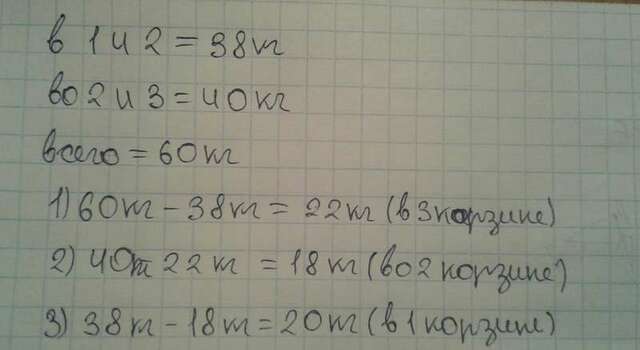 в 1 и 2 = 38кг
во 2 и 3 = 40кг
всего = 60кг
1) 60кг - 38кг = 22кг (в 3 корзине)
2) 40кг 22кг = 18кг (во 2 корзине)
3) 38кг - 18кг = 20кг (в 1 корзине)